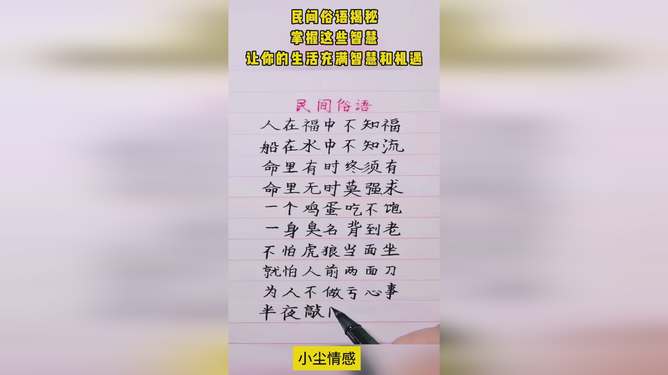 民间俗语揭秘
掌握这些智慧
让你的生活充满智慧和机遇
民间俗语
人在福中不知福
船在水中不知流
命里有时终须有
命里无时莫强求
一个鸡蛋吃不饱
一身臭名背到老
不怕虎狼当面坐
就怕人前两面刀
为人不做亏心事
半夜敲
小尘情感